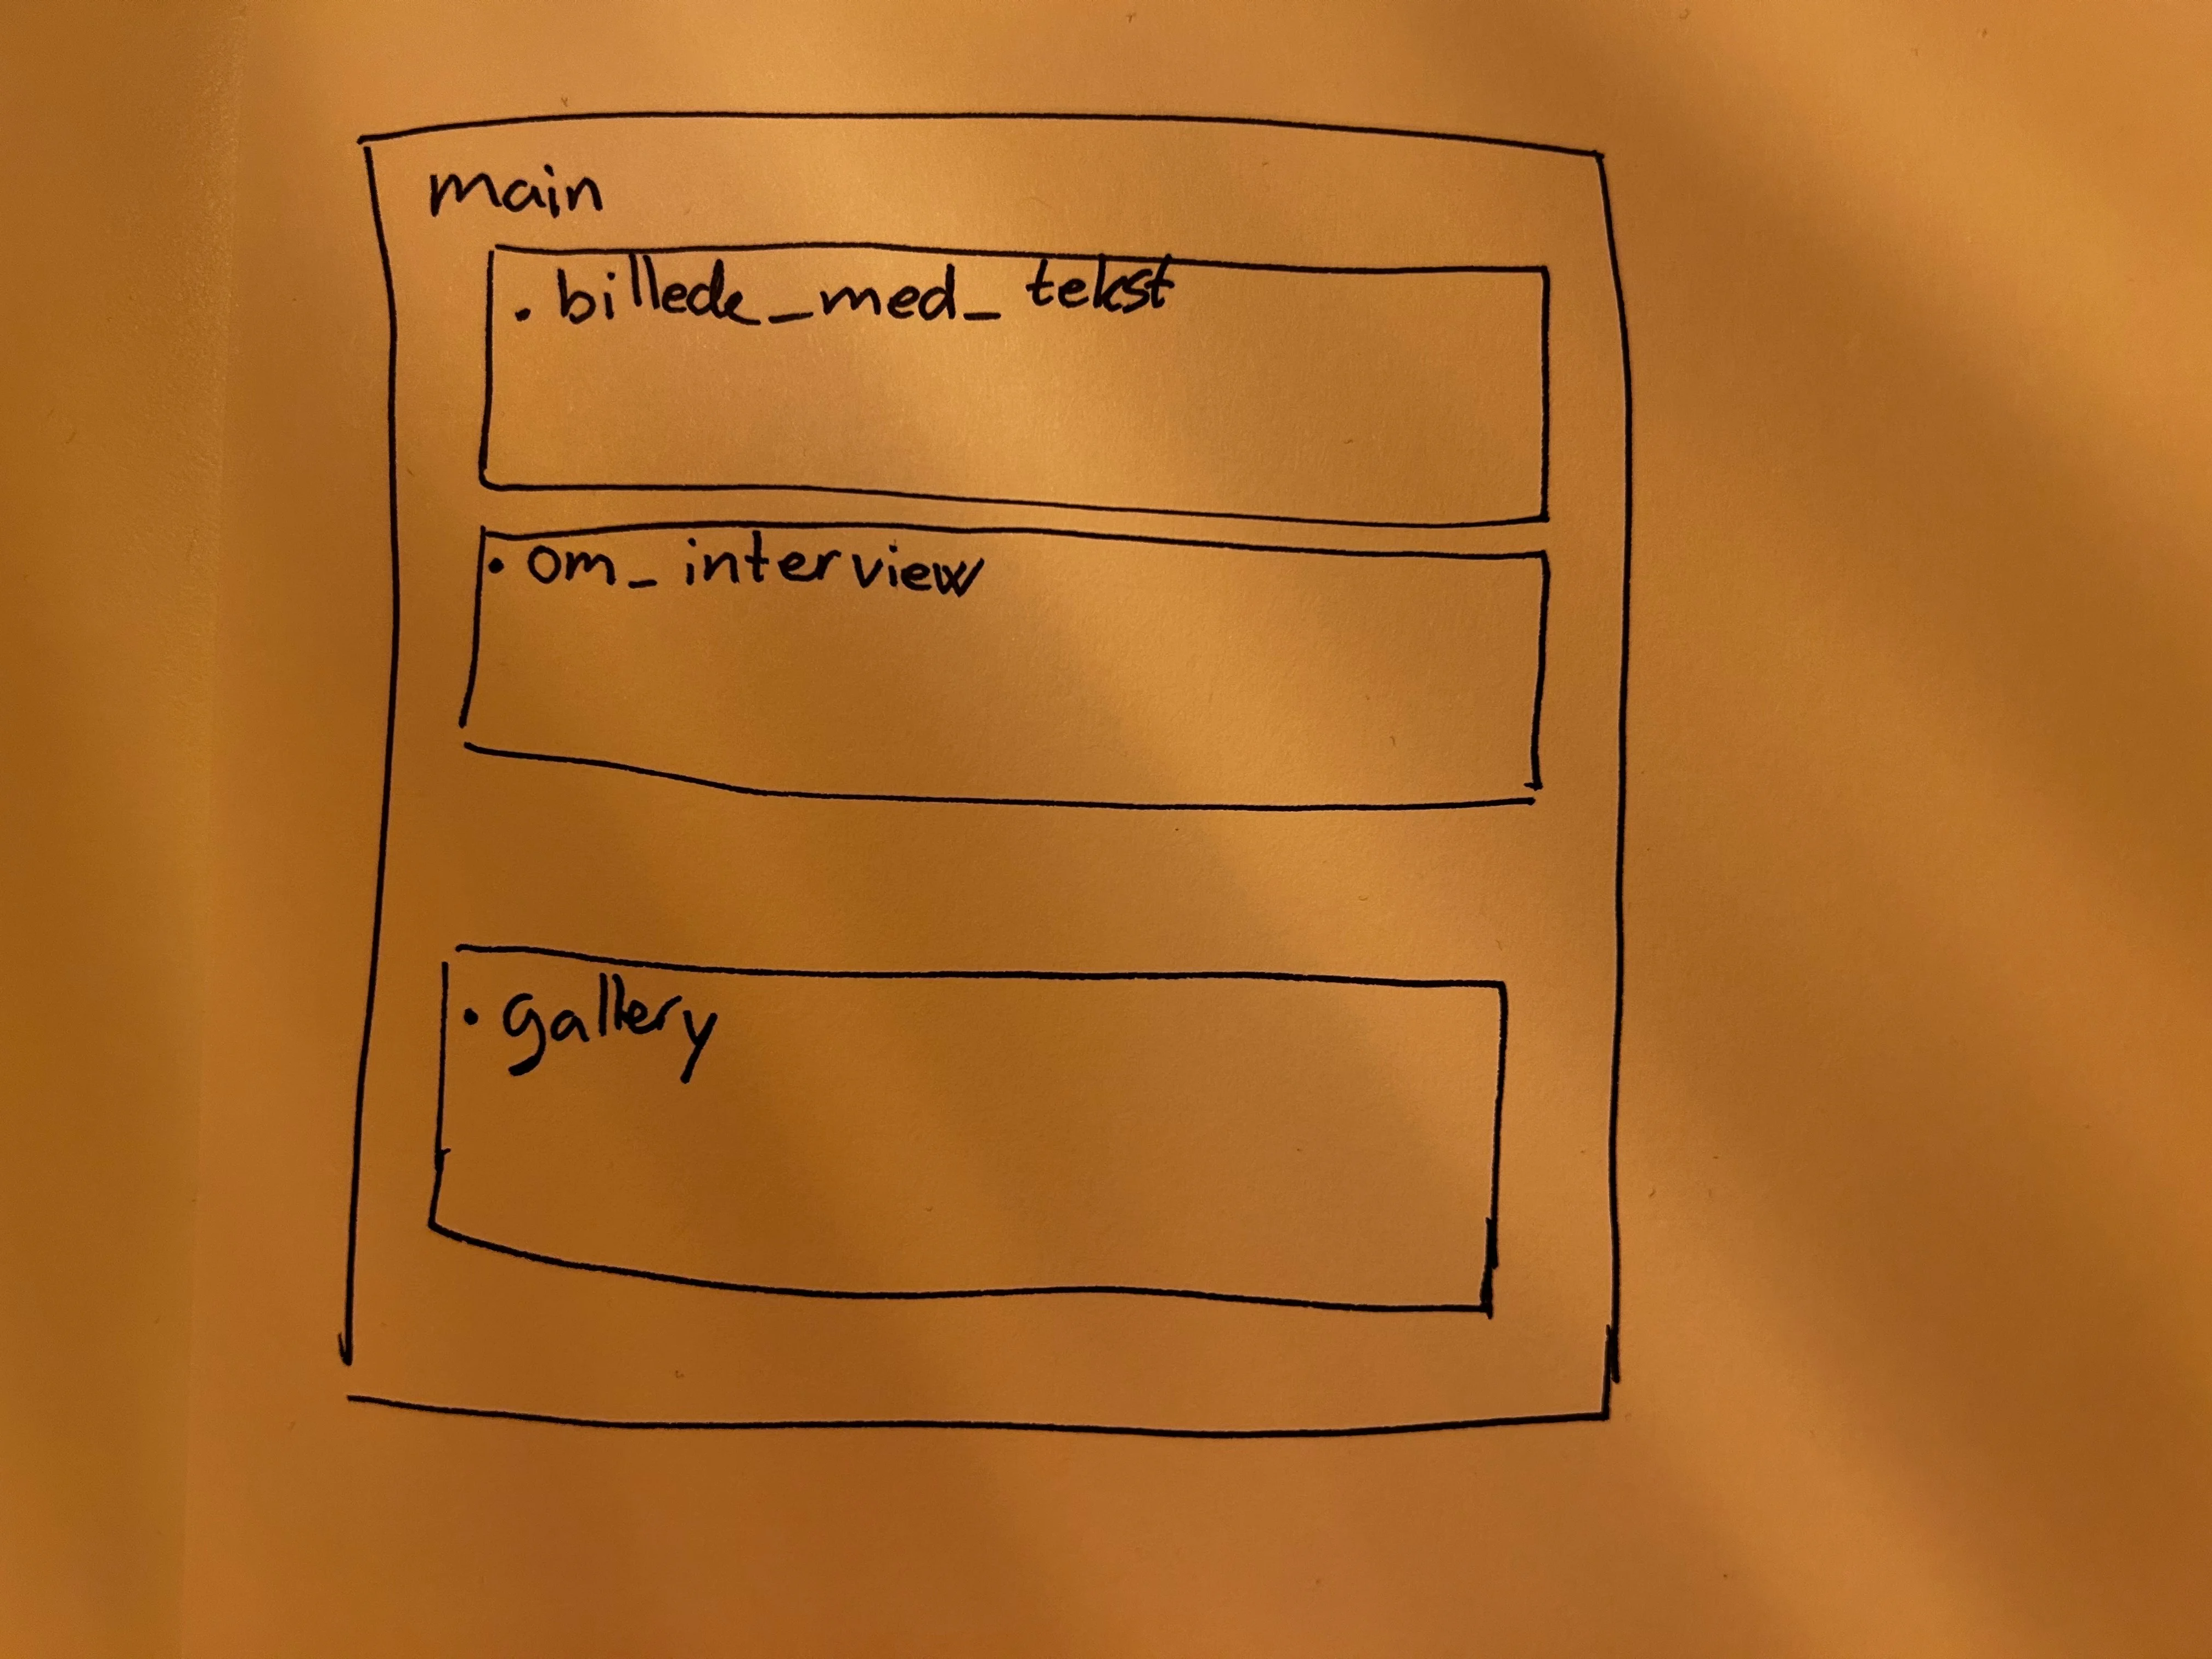 main
.billede_med_tekst
.om_interview
.gallery